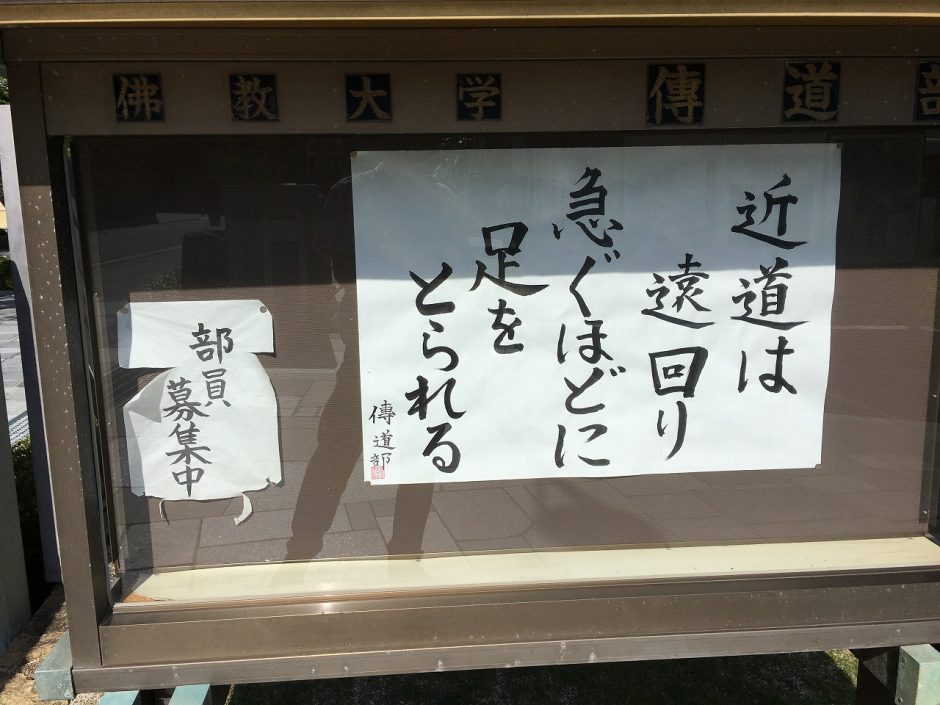 佛教大学 傳道部
近道は
遠回り
急ぐほどに
足を
とられる
傳道部
部員
募集中